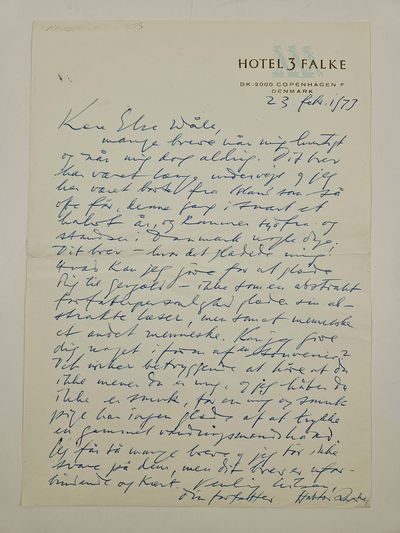 HOTEL 3 FALKE
DK-2000 COPENHAGEN F
DENMARK
23 feb. 1973
Kære Else
mange breve når mig hurtigt
og når mig dog aldrig. Dit brev
har været længe undervejs og jeg
har været borte fra Island som så
ofte før, denne gang i snart et
halvt år, og kommer
standser i Danmark nogle dage.
Dit brev – hvor det glædede mig!
Hvad kan jeg gøre for at glæde
dig til gengæld – ikke som en abstrakt
forfatterpersonlighed glæder sin ab-
strakte læser, men som et menneske
et andet menneske. Kan jeg give
dig noget i form af en souvenir?
Det virker betryggende at høre at du
ikke mener du er ung, og jeg håber du
ikke er smuk, for en ung og smuk
pige har ingen glæde af at trykke
en gammel mand i hånd
Jeg får så mange breve og jeg tør ikke
svare på dem, men dit brev er ufor-
bindende og kært. Venlig hilsen,
din forfatter